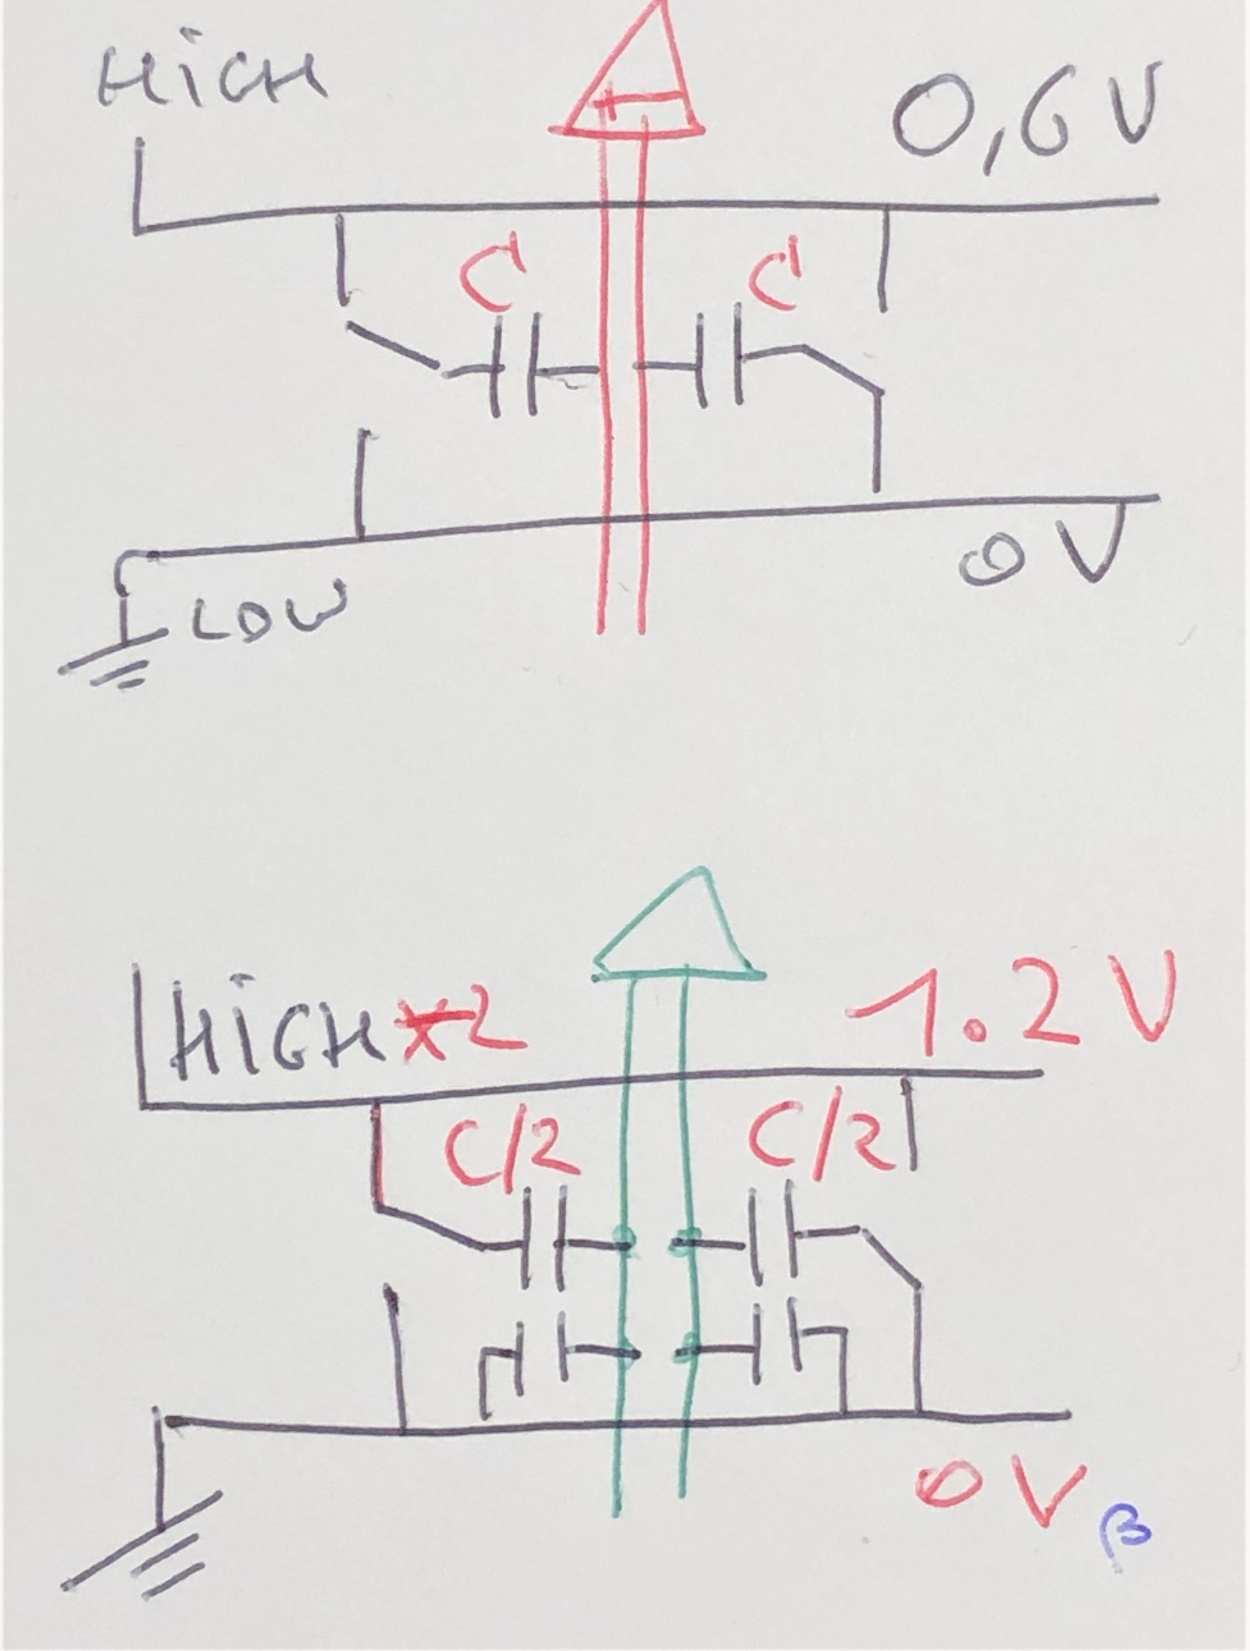 HIGH
0,6 V
C C
0 V
LOW
HIGH x2 1.2 V
C/2 C/2
0 V
β